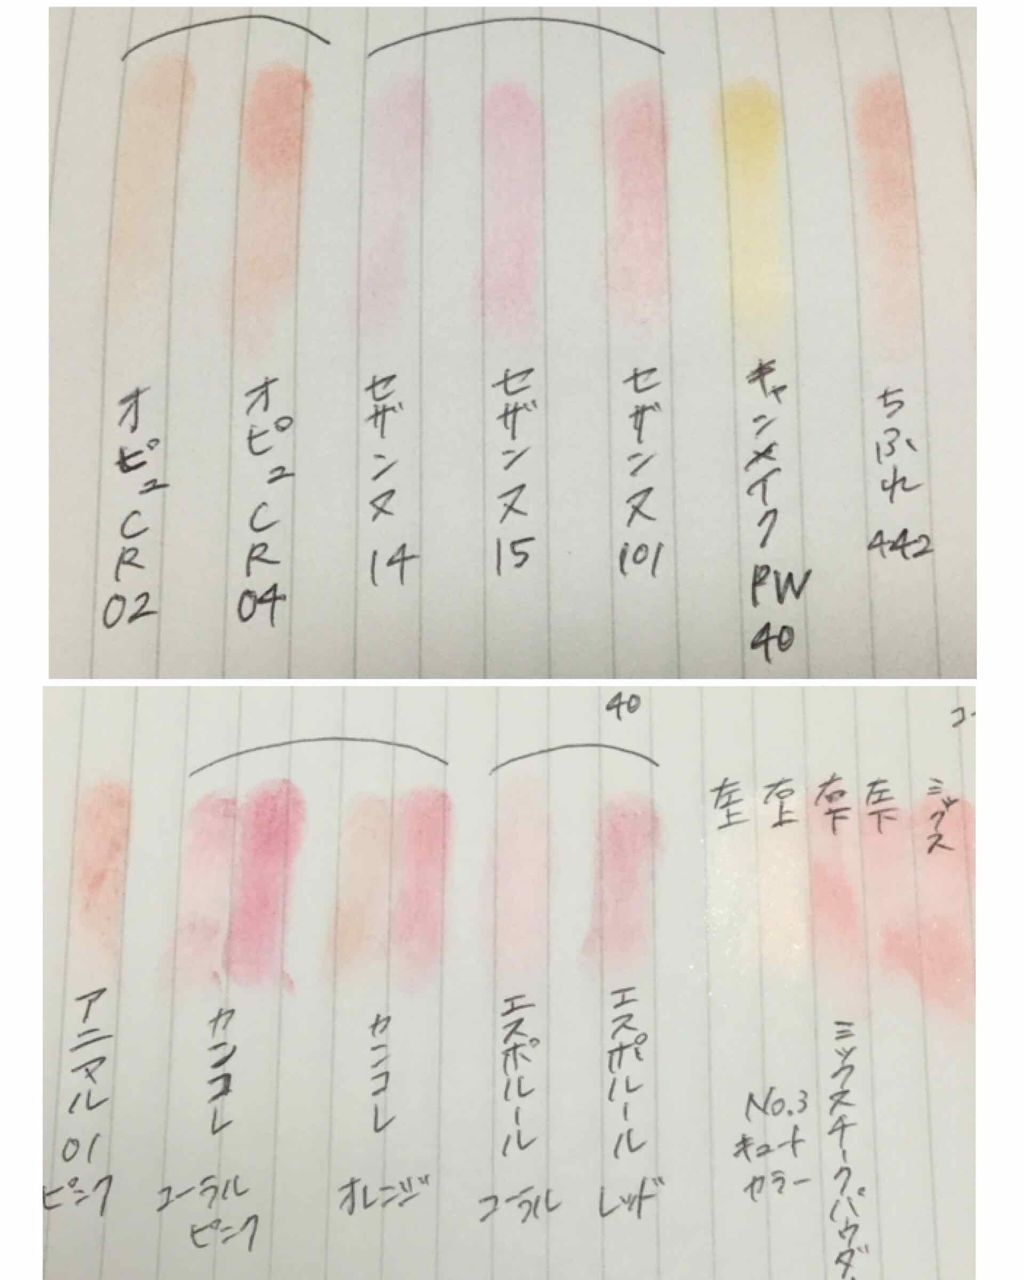 オピュCR02
オピュCR04
セザンヌ14
セザンヌ15
セザンヌ101
キャンメイクPW40
ちふれ442
40
コ
アニマル01
ピンク
カンコレ
コーラル
ピンク
カンコレ
オレンジ
エスポルール
コーラル
エスポルール
レッド
左上
右上
右下
左下
ミックス
No.3
キュート
カラー
ミックスチークパウダ